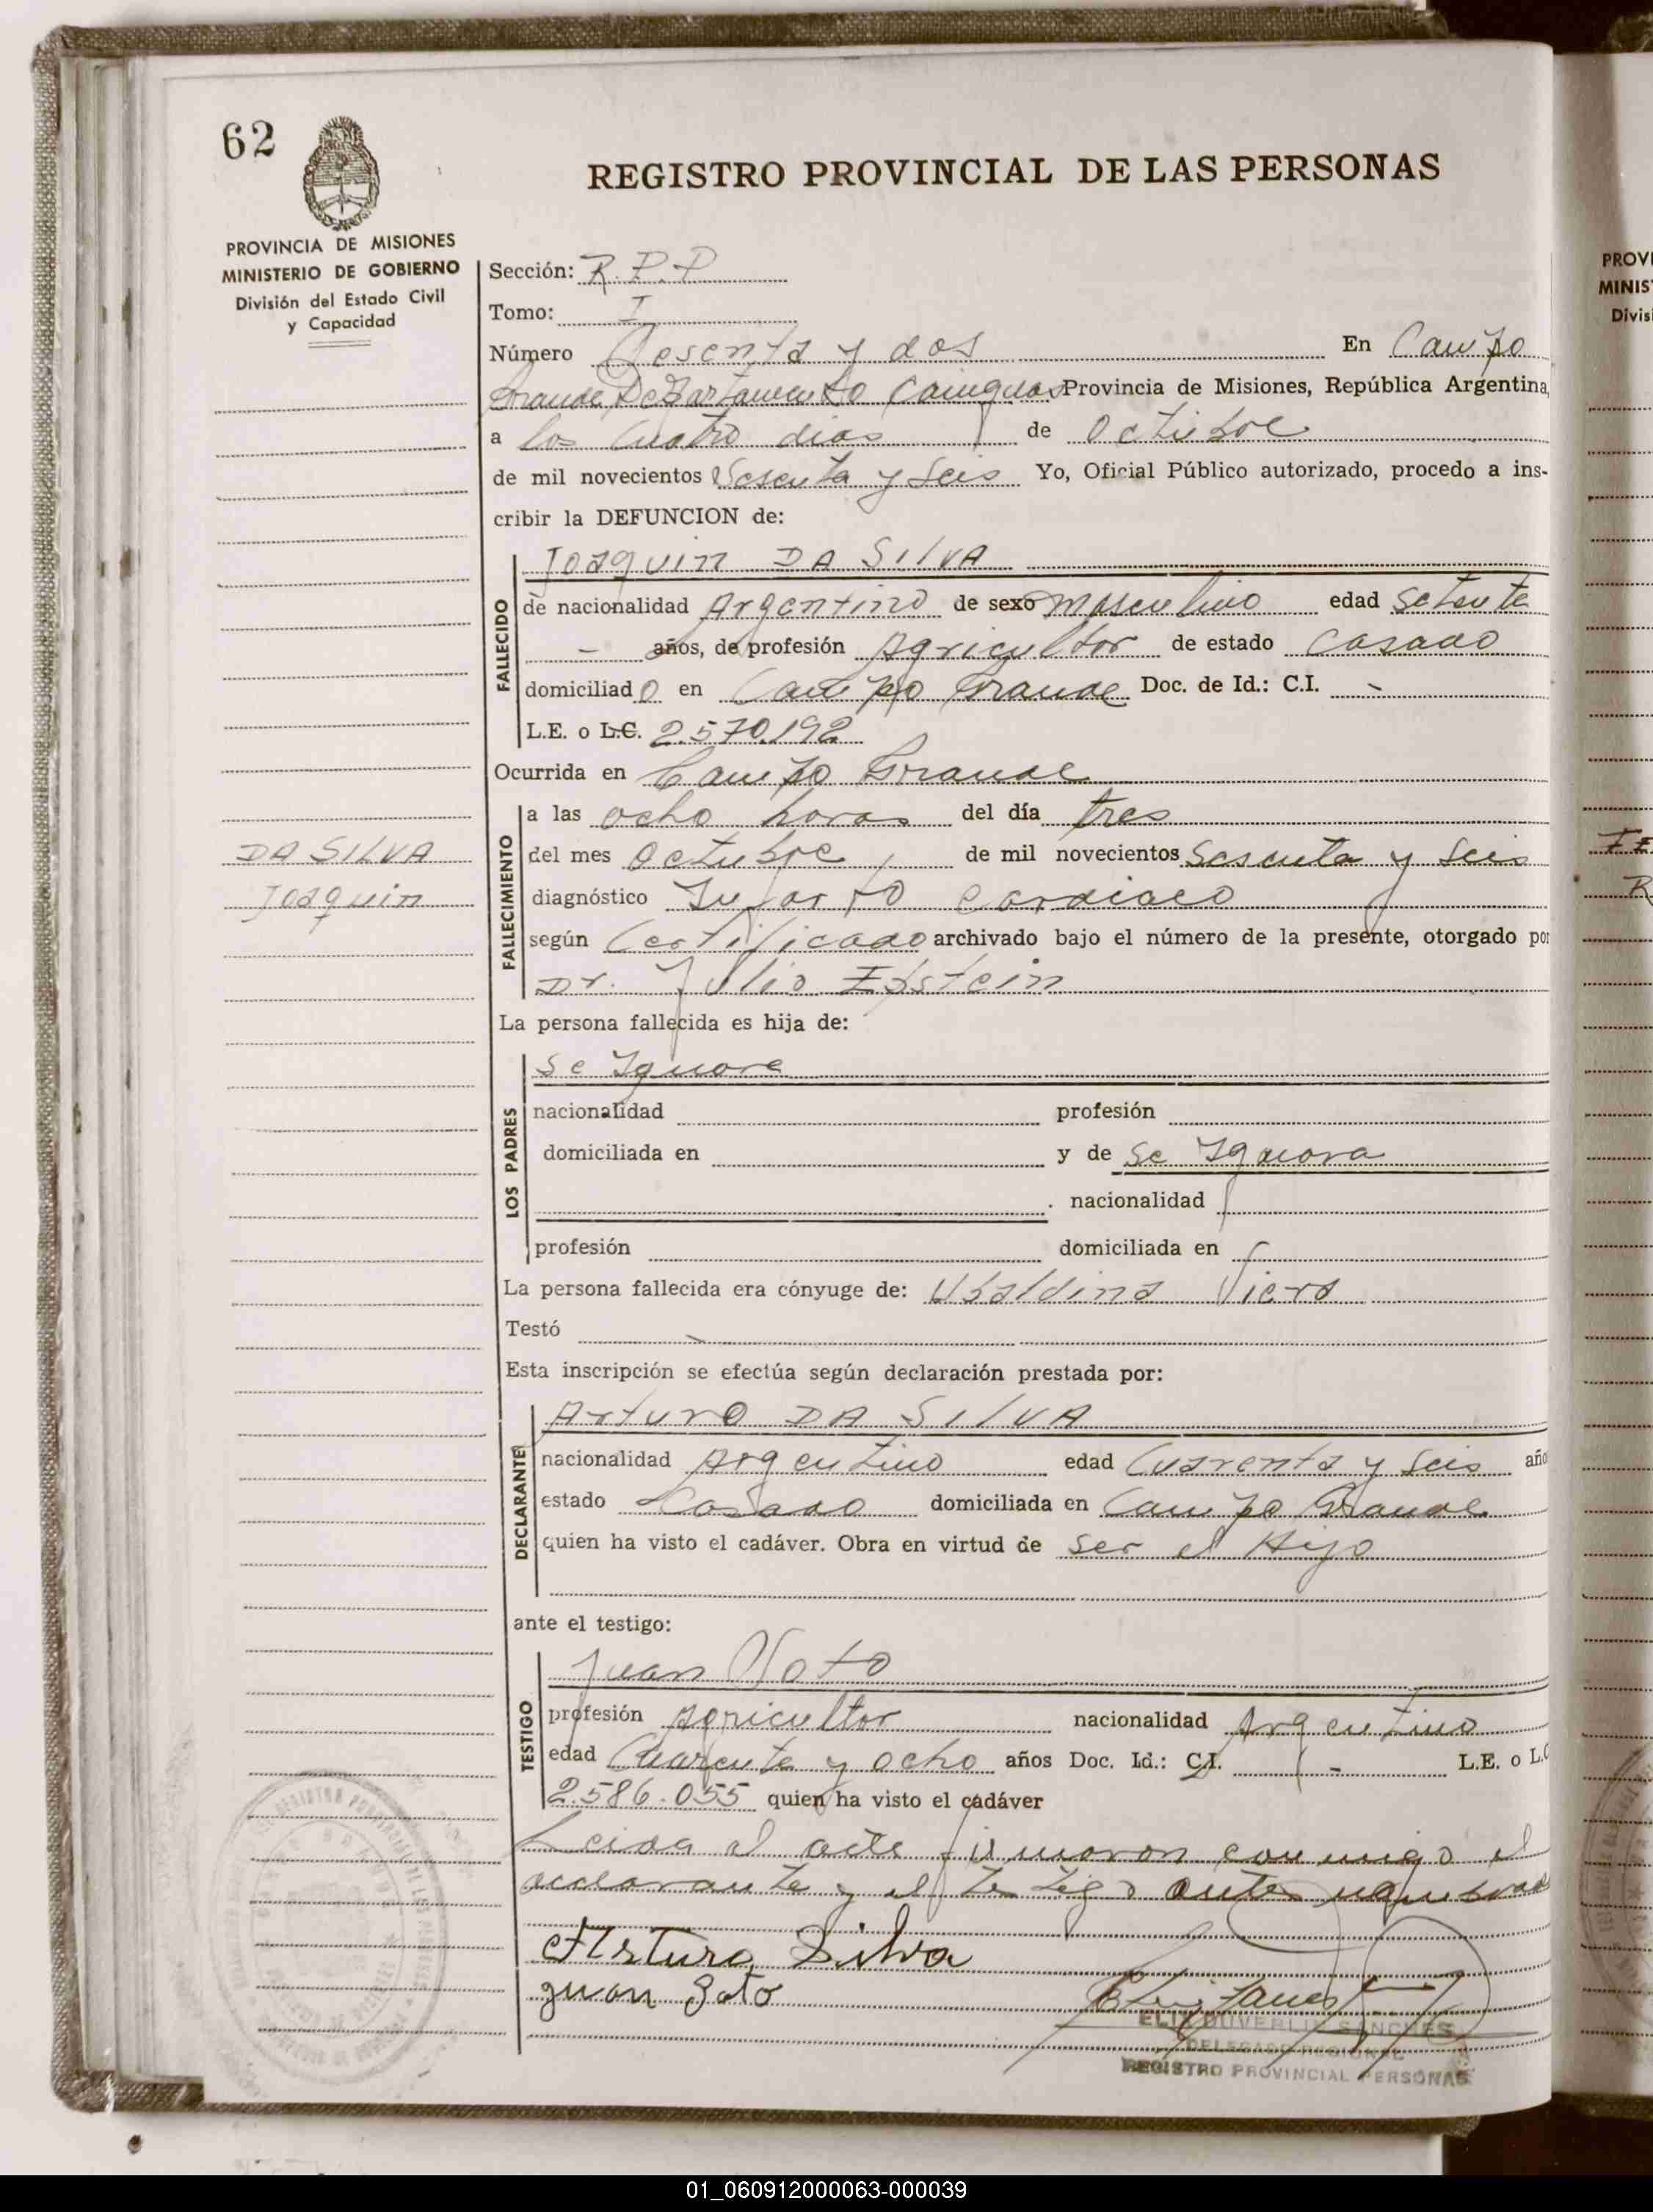 62
REGISTRO PROVINCIAL DE LAS PERSONAS
PROVINCIA DE MISIONES
MINISTERIO DE GOBIERNO
División del Estado Civil
y Capacidad
Sección: R.P.P
Tomo: I
Número Sesenta y dos En Campo
Grande Departamento Cainguas Provincia de Misiones, República Argentina,
a los cuatro dias de Octubre
de mil novecientos Sesenta y Seis Yo, Oficial Público autorizado, procedo a ins-
cribir la DEFUNCION de:
FALLECIDO
Joaquin DA SilVA
de nacionalidad Argentino de sexo masculino edad setenta
- años, de profesión Agricultor de estado Casado
domiciliado en Campo Grande Doc. de Id.: C.I. -
L.E. o L.C. 2.570.192
Ocurrida en Campo Grande
FALLECIMIENTO
a las ocho horas del día tres
del mes Octubre, de mil novecientos Sesenta y Seis
diagnóstico Infarto Cardiaco
según Certificado archivado bajo el número de la presente, otorgado por
Dr. Julio Epstein
DA SILVA
Joaquin
La persona fallecida es hija de:
LOS PADRES
Se Ignora
nacionalidad profesión
domiciliada en y de Se Ignora
. nacionalidad
profesión domiciliada en
La persona fallecida era cónyuge de: Ubaldina Viera
Testó -
Esta inscripción se efectúa según declaración prestada por:
DECLARANTE
Arturo DA SilVA
nacionalidad Argentino edad Cuarenta y Seis año
estado Casado domiciliada en Campo Grande
quien ha visto el cadáver. Obra en virtud de ser el Hijo
ante el testigo:
TESTIGO
Juan Soto
profesión Agricultor nacionalidad Argentino
edad Cuarenta y ocho años Doc. Id.: C.I. - L.E. o L.C
2.586.055 quien ha visto el cadáver
Leida el acta firmaron conmigo el
declarante y el testigo antes nombrado
Arturo Silva
Juan Soto
SANCHES
DELEGADO REGIONAL
REGISTRO PROVINCIAL PERSONAS
PROVI
MINIS
Divisi
01_060912000063-000039